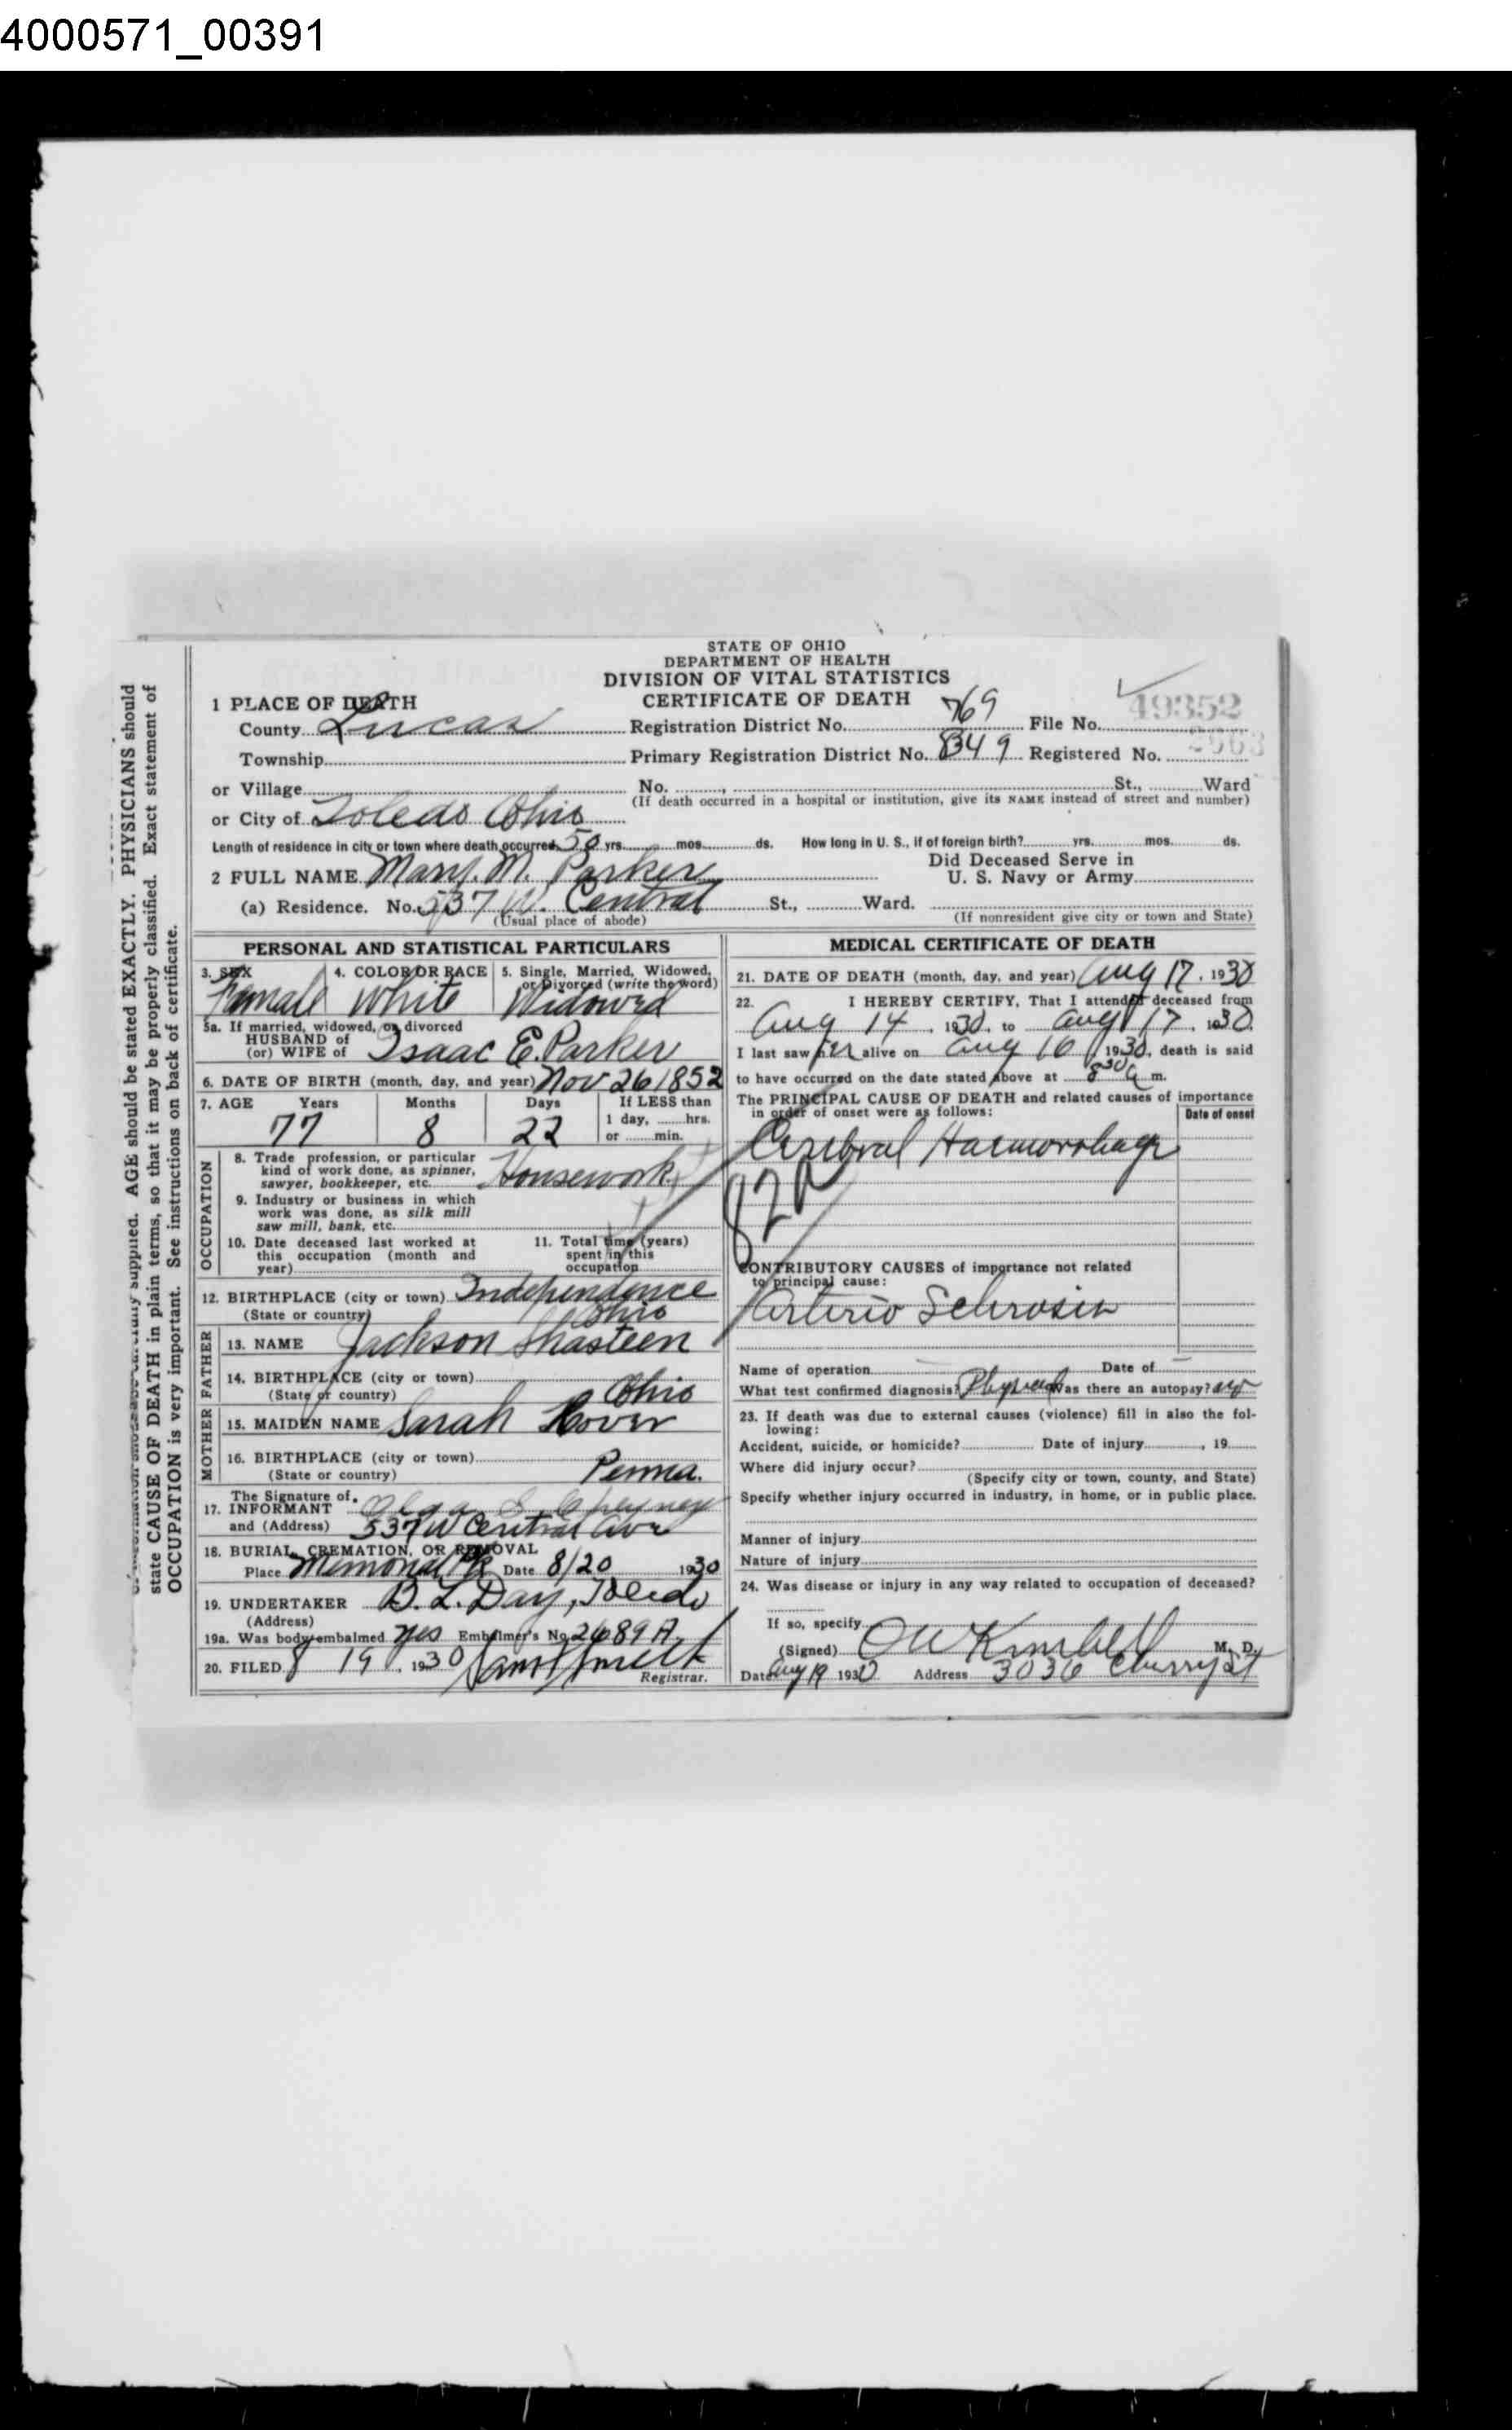 4000571_00391
STATE OF OHIO
DEPARTMENT OF HEALTH
DIVISION OF VITAL STATISTICS
CERTIFICATE OF DEATH
1 PLACE OF DEATH
County Lucas Registration District No. 769 File No. 49352
Township Primary Registration District No. 8349 Registered No.
or Village No. St., Ward
(If death occurred in a hospital or institution, give its NAME instead of street and number)
or City of Toledo Ohio
Length of residence in city or town where death occurred 50 yrs. mos. ds. How long in U. S., if of foreign birth? yrs. mos. ds.
2 FULL NAME Mary. M. Parker Did Deceased Serve in U. S. Navy or Army
(a) Residence. No. 537 W. Central St., Ward.
(Usual place of abode) (If nonresident give city or town and State)
PERSONAL AND STATISTICAL PARTICULARS
3. SEX Female 4. COLOR OR RACE White 5. Single, Married, Widowed, or Divorced (write the word) Widowed
5a. If married, widowed, or divorced
HUSBAND of
(or) WIFE of Isaac E. Parker
6. DATE OF BIRTH (month, day, and year) Nov 26 1852
7. AGE Years Months Days If LESS than
77 8 22 1 day, hrs. or min.
OCCUPATION
8. Trade profession, or particular
kind of work done, as spinner,
sawyer, bookkeeper, etc. Housework
9. Industry or business in which
work was done, as silk mill
saw mill, bank, etc.
10. Date deceased last worked at
this occupation (month and
year)
11. Total time (years)
spent in this
occupation
12. BIRTHPLACE (city or town) Independence
(State or country) Ohio
FATHER
13. NAME Jackson Shasteen
14. BIRTHPLACE (city or town)
(State or country) Ohio
MOTHER
15. MAIDEN NAME Sarah Hover
16. BIRTHPLACE (city or town)
(State or country) Penna.
The Signature of
17. INFORMANT Olga S. Cheyney
and (Address) 537 W Central Ave
18. BURIAL, CREMATION, OR REMOVAL
Place Memorial Pk Date 8/20 1930
19. UNDERTAKER B. L. Day, Toledo
(Address)
19a. Was body embalmed yes Embalmer's No. 2689 A
20. FILED 8 19, 1930
Registrar.
MEDICAL CERTIFICATE OF DEATH
21. DATE OF DEATH (month, day, and year) Aug 17, 1930
22. I HEREBY CERTIFY, That I attended deceased from
Aug 14, 1930, to Aug 17, 1930.
I last saw her alive on Aug 16, 1930, death is said
to have occurred on the date stated above at 8 30 a m.
The PRINCIPAL CAUSE OF DEATH and related causes of importance
in order of onset were as follows: Date of onset
Cerebral Haemorrhage
82A
CONTRIBUTORY CAUSES of importance not related
to principal cause:
Arterio Sclerosis
Name of operation Date of
What test confirmed diagnosis? Physical Was there an autopsy? no
23. If death was due to external causes (violence) fill in also the following:
Accident, suicide, or homicide? Date of injury, 19
Where did injury occur?
(Specify city or town, county, and State)
Specify whether injury occurred in industry, in home, or in public place.
Manner of injury
Nature of injury
24. Was disease or injury in any way related to occupation of deceased?
If so, specify
(Signed) O W Kimbell M. D.
Date Aug 19 1930 Address 3036 Cherry St
supplied. AGE should be stated EXACTLY. PHYSICIANS should
state CAUSE OF DEATH in plain terms, so that it may be properly classified. Exact statement of
OCCUPATION is very important. See instructions on back of certificate.